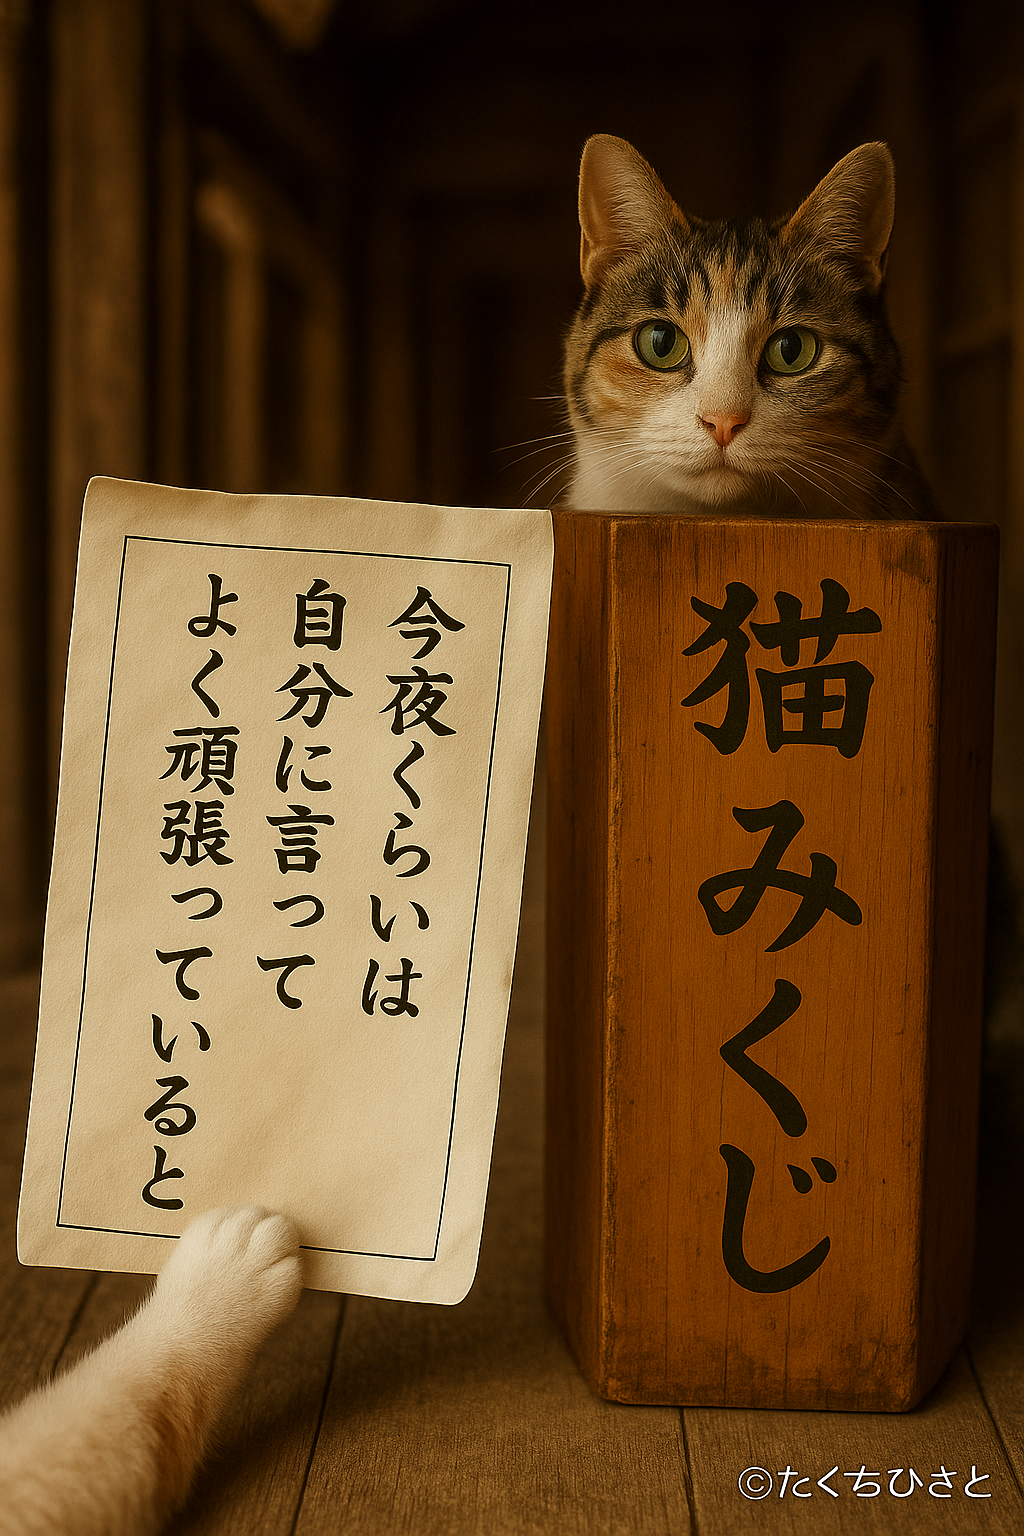 今夜くらいは
自分に言って
よく頑張っていると
猫みくじ
©たくちひさと